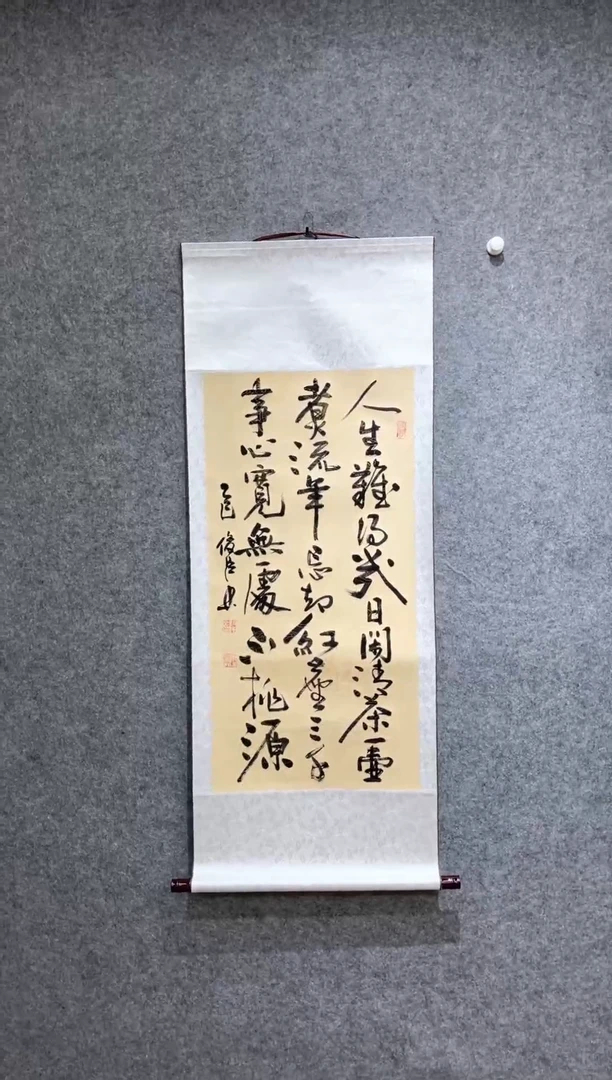 人生難得幾日閒清茶一壺
煮流年忘却紅塵三千
事心寬無處不桃源
俊臣書